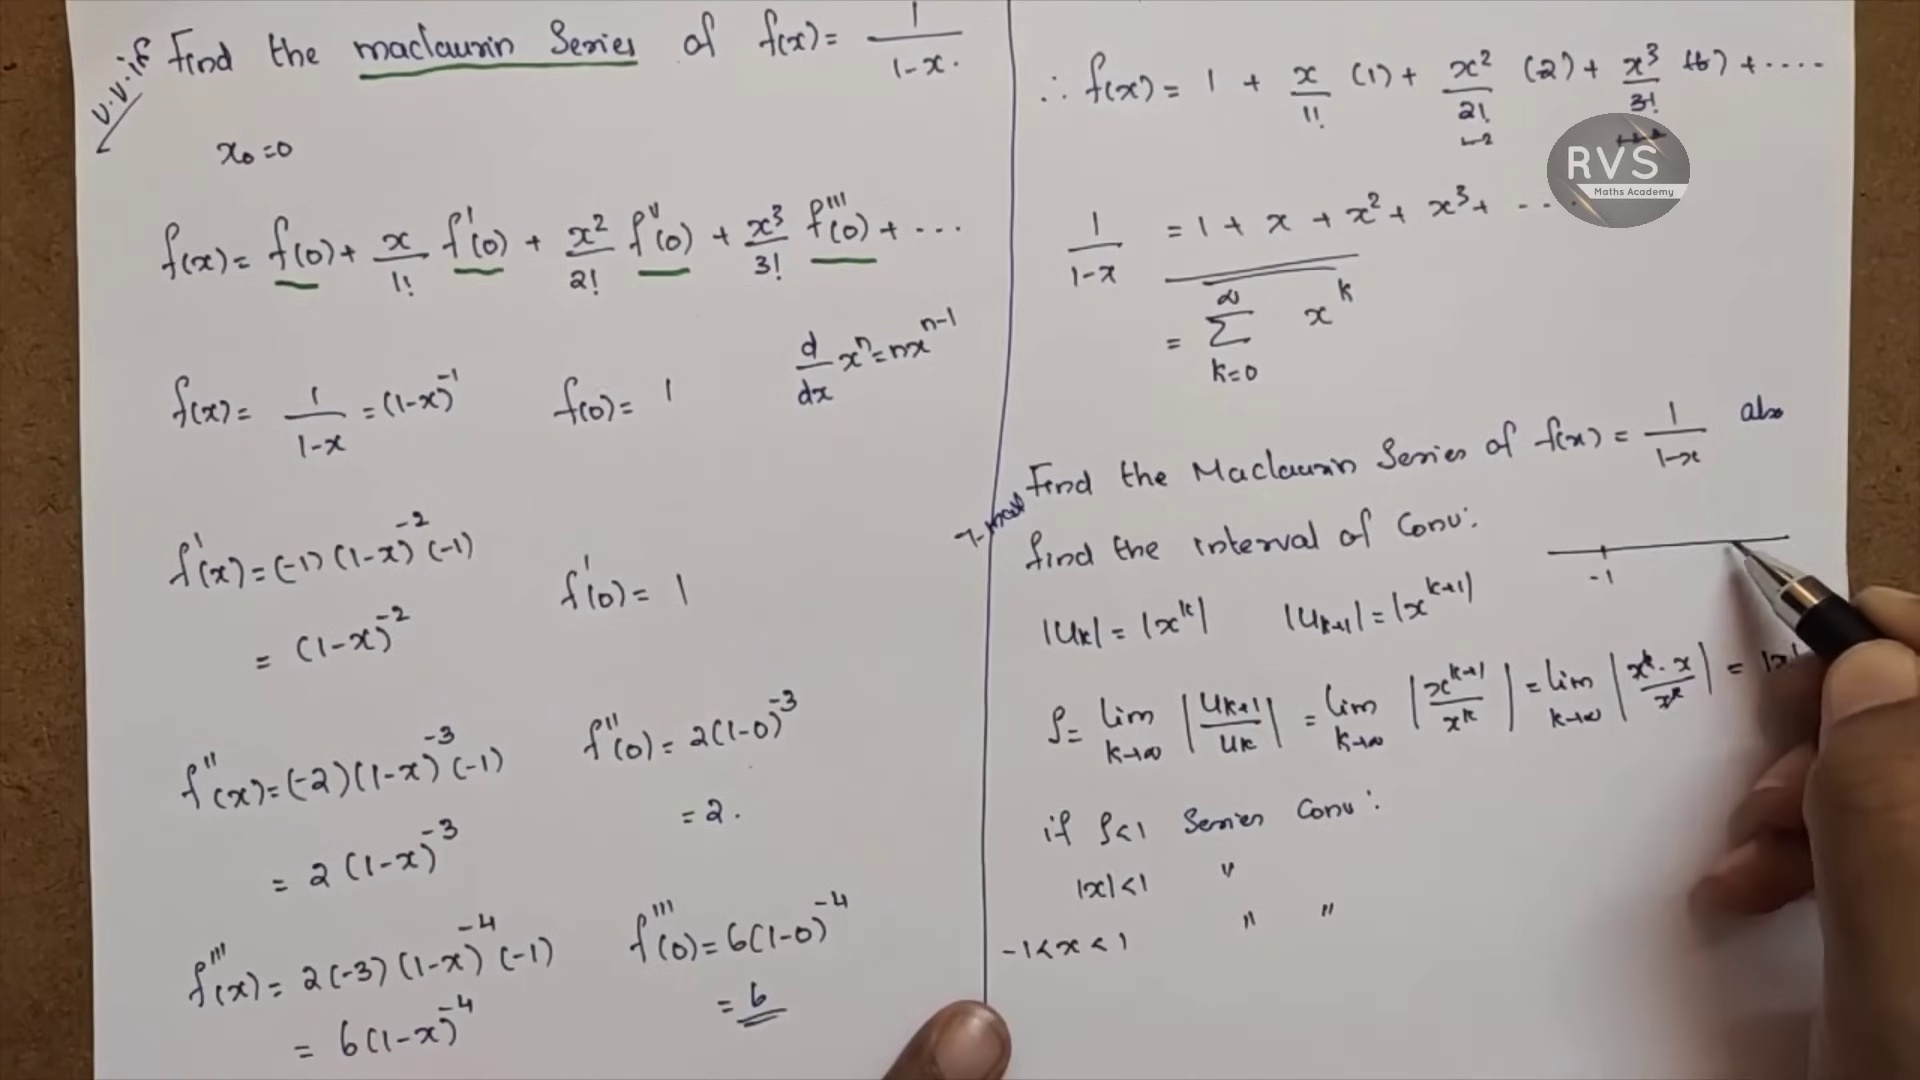 V.V.if Find the maclaurin Series of f(x) = 1/1-x.
x₀=0
f(x) = f(0) + x/1! f'(0) + x²/2! f''(0) + x³/3! f'''(0) + ...
f(x) = 1/1-x = (1-x)⁻¹ f(0) = 1 d/dx xⁿ = nxⁿ⁻¹
f'(x) = (-1)(1-x)⁻²(-1) f'(0) = 1
= (1-x)⁻²
f''(x) = (-2)(1-x)⁻³(-1) f''(0) = 2(1-0)⁻³
= 2(1-x)⁻³ = 2.
f'''(x) = 2(-3)(1-x)⁻⁴(-1) f'''(0) = 6(1-0)⁻⁴
= 6(1-x)⁻⁴ = 6
∴ f(x) = 1 + x/1! (1) + x²/2! (2) + x³/3! (6) + ....
RVS
Maths Academy
1/1-x = 1 + x + x² + x³ + ...
= ∑ₖ₌₀^∞ xᵏ
Find the Maclaurin Series of f(x) = 1/1-x also
find the interval of Conv:
-1
|Uₖ| = |xᵏ| |Uₖ₊₁| = |xᵏ⁺¹|
ρ = lim k→∞ |Uₖ₊₁/Uₖ| = lim k→∞ |xᵏ⁺¹/xᵏ| = lim k→∞ |xᵏ·x/xᵏ| = |x|
if ρ<1 Series Conv:
|x|<1 "
-1<x<1 " "